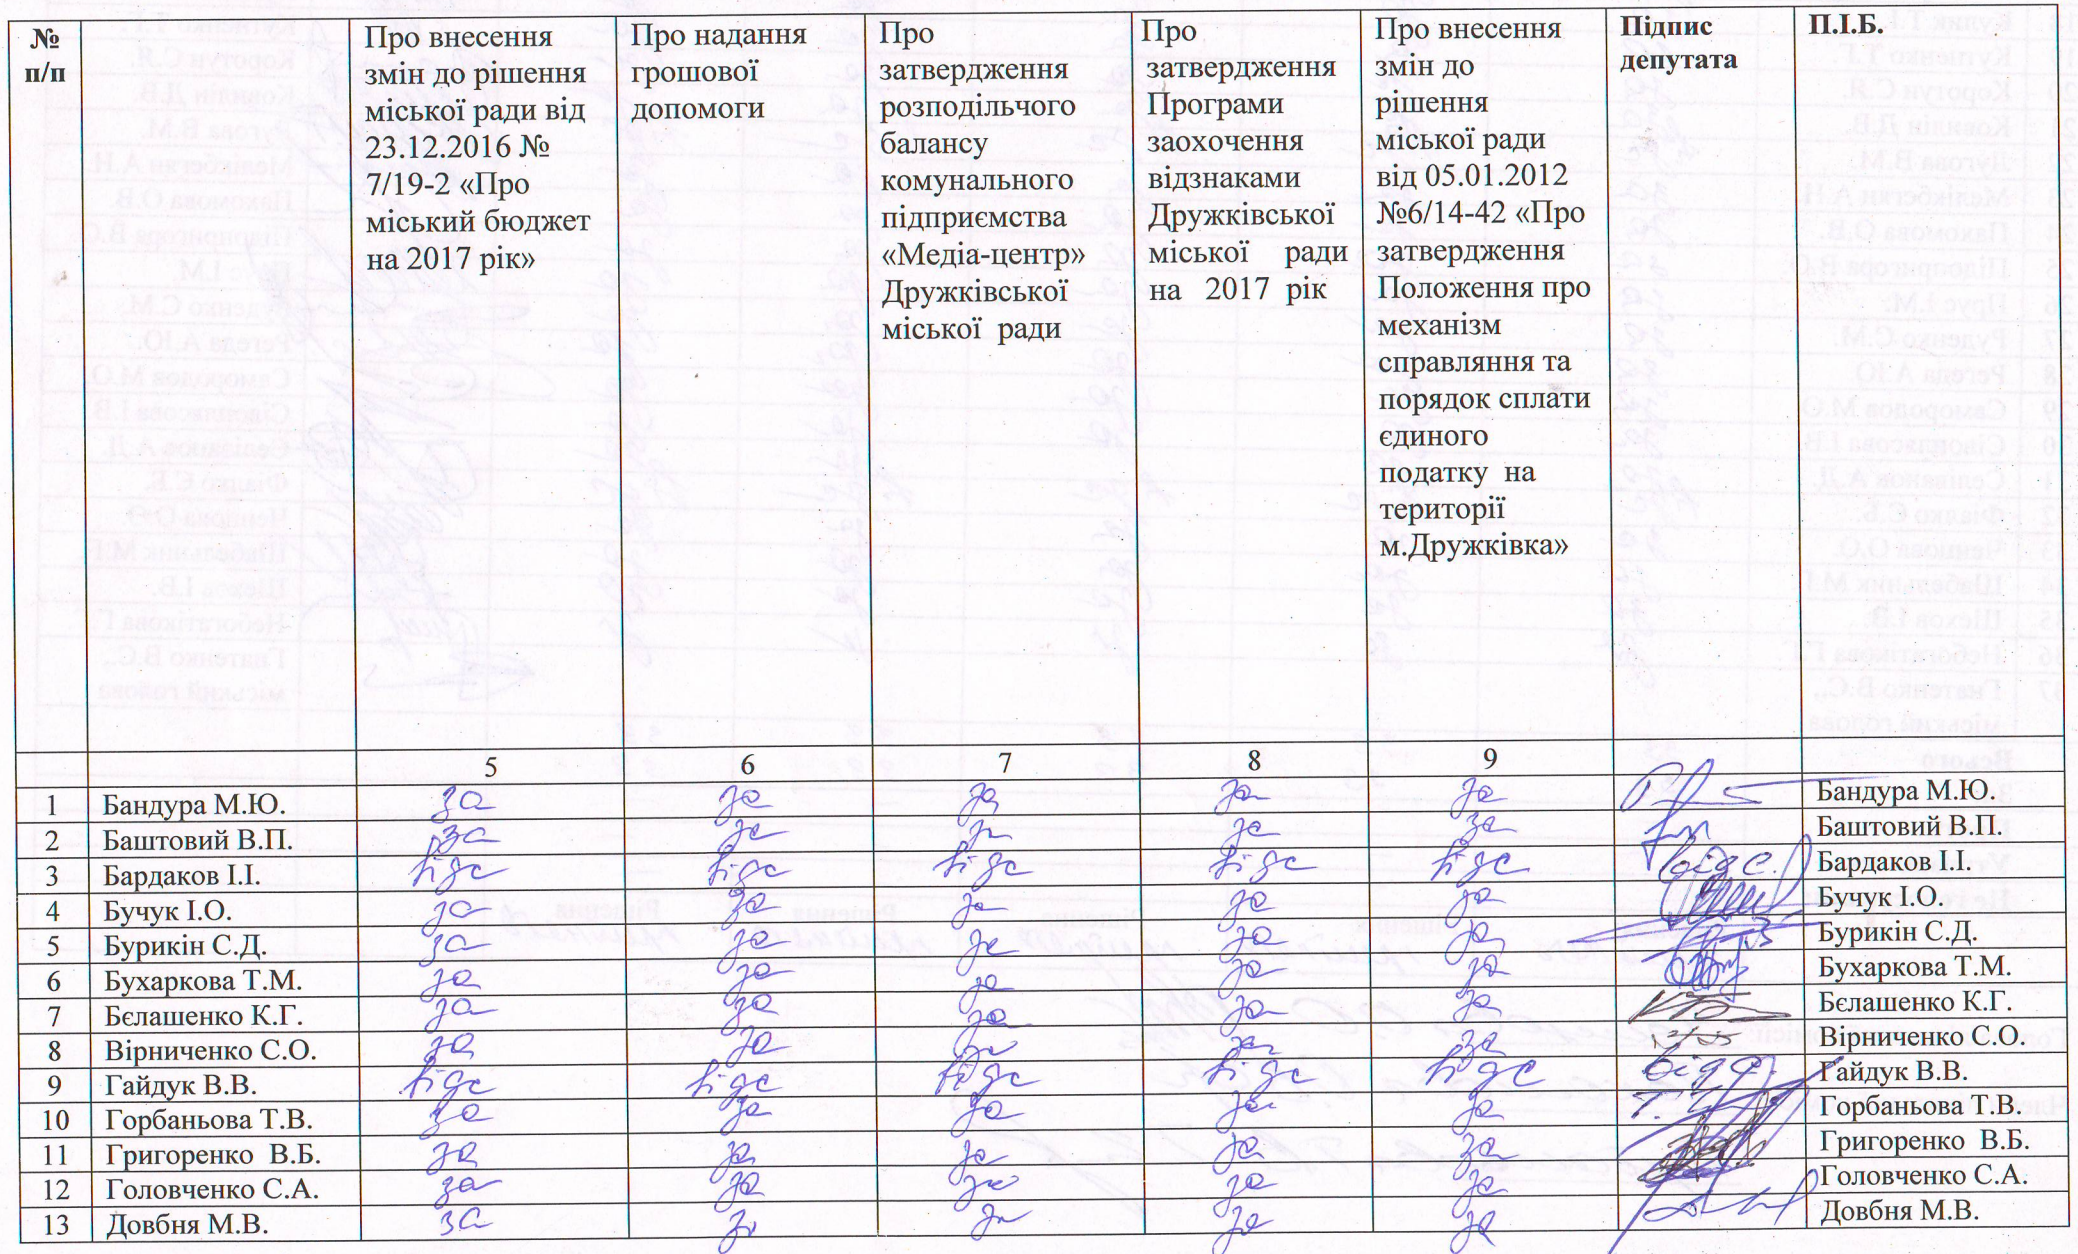 № п/п
Про внесення
змін до рішення
міської ради від
23.12.2016 №
7/19-2 «Про
міський бюджет
на 2017 рік»
Про надання
грошової
допомоги
Про
затвердження
розподільчого
балансу
комунального
підприємства
«Медіа-центр»
Дружківської
міської ради
Про
затвердження
Програми
заохочення
відзнаками
Дружківської
міської ради
на 2017 рік
Про внесення
змін до
рішення
міської ради
від 05.01.2012
№6/14-42 «Про
затвердження
Положення про
механізм
справляння та
порядок сплати
єдиного
податку на
території
м.Дружківка»
Підпис
депутата
П.І.Б.
5 6 7 8 9
1 Бандура М.Ю. за за за за за Бандура М.Ю.
2 Баштовий В.П. за за за за за Баштовий В.П.
3 Бардаков І.І. відс відс відс відс відс відс. Бардаков І.І.
4 Бучук І.О. за за за за за Бучук І.О.
5 Бурикін С.Д. за за за за за Бурикін С.Д.
6 Бухаркова Т.М. за за за за за Бухаркова Т.М.
7 Бєлашенко К.Г. за за за за за Бєлашенко К.Г.
8 Вірниченко С.О. за за за за за Вірниченко С.О.
9 Гайдук В.В. відс відс відс відс відс відс Гайдук В.В.
10 Горбаньова Т.В. за за за за за Горбаньова Т.В.
11 Григоренко В.Б. за за за за за Григоренко В.Б.
12 Головченко С.А. за за за за за Головченко С.А.
13 Довбня М.В. за за за за за Довбня М.В.